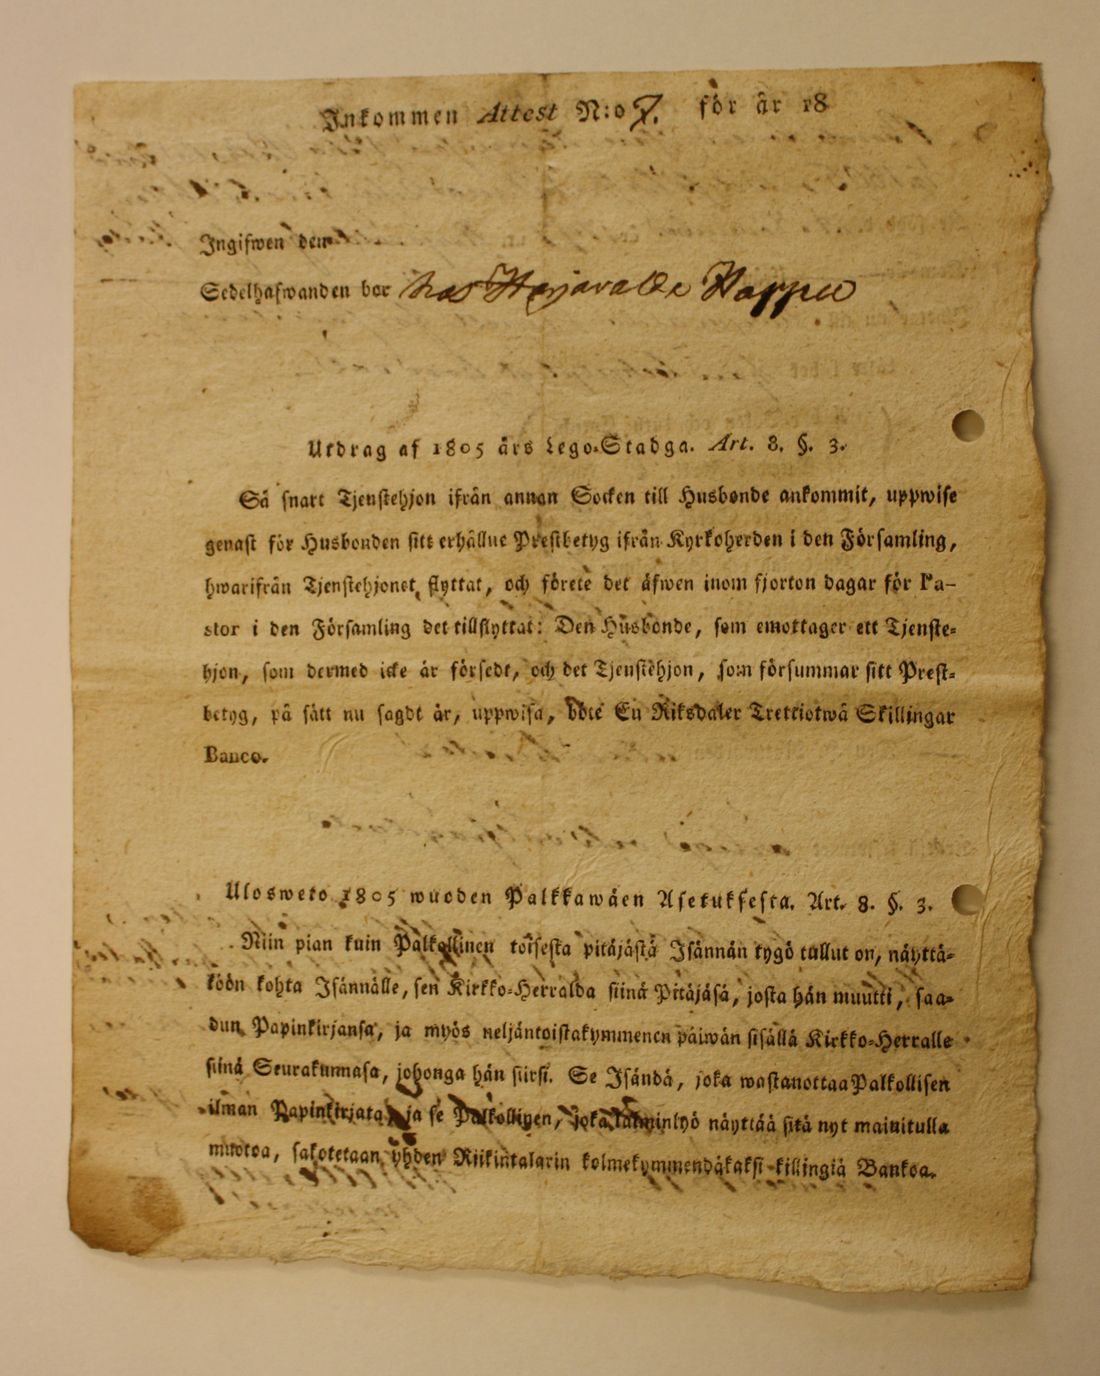 Inkommen Attest N:o 7. för år 18
Ingifwen den
Sedelhafwanden bor hos Harjavalda Nappu
Utdrag af 1805 års Lego-Stadga. Art. 8. §. 3.
Så snart Tjenstehjon ifrån annan Socken till Husbonde ankommit, uppwise
genast för Husbonden sitt erhållne Prestbetyg ifrån Kyrkoherden i den Församling,
hwarifrån Tjenstehjonet flyttat, och förete det äfwen inom fjorton dagar för Pa-
stor i den Församling det tillflyttat: Den Husbonde, som emottager ett Tjenste-
hjon, som dermed icke är försedt, och det Tjenstehjon, som försummar sitt Prest-
betyg, på sätt nu sagdt är, uppwisa, böte En Riksdaler Trettiotwå Skillingar
Banco.
Ulosweto 1805 wuoden Palkkawäen Asetuksesta. Art. 8. §. 3.
Niin pian kuin Palkollinen toisesta pitäjästä Isännän tygö tullut on, näyttä-
köön kohta Isännälle, sen Kirkko-Herralda siinä Pitäjäsä, josta hän muutti, saa-
dun Papinkirjansa, ja myös neljäntoistakymmenen päiwän sisällä Kirkko-Herralle
siinä Seurakunnasa, johonga hän siirsi. Se Isändä, joka wastanottaa Palkollisen
ilman Papinkirjata, ja se Palkollinen, joka laiminlyö näyttää sitä nyt mainitulla
muotoa, sakotetaan yhden Riikintalarin kolmekymmendäkaksi killingiä Bankoa.